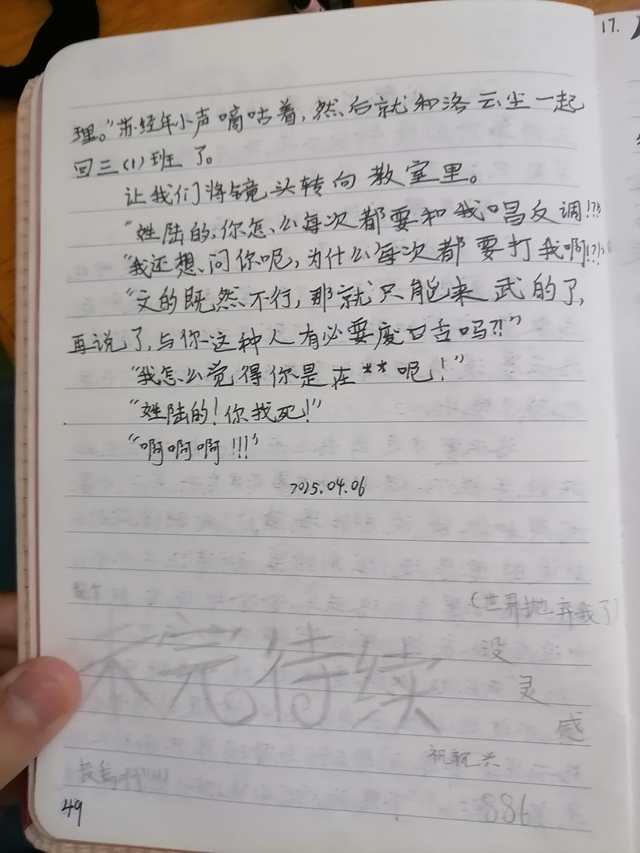 17.
理。”苏经年小声嘀咕着,然后就和洛云尘一起
回三(1)班了。
让我们将镜头转向教室里。
“姓陆的,你怎么每次都要和我唱反调!?”
“我还想问你呢,为什么每次都要打我啊!?”
“文的既然不行,那就只能来武的了,
再说了,与你这种人有必要废口舌吗?!”
“我怎么觉得你是在**呢!”
“姓陆的!你找死!”
“啊啊啊!!!”
2025.04.06
(世界抛弃我了)
未完待续
没
灵
感
886
49